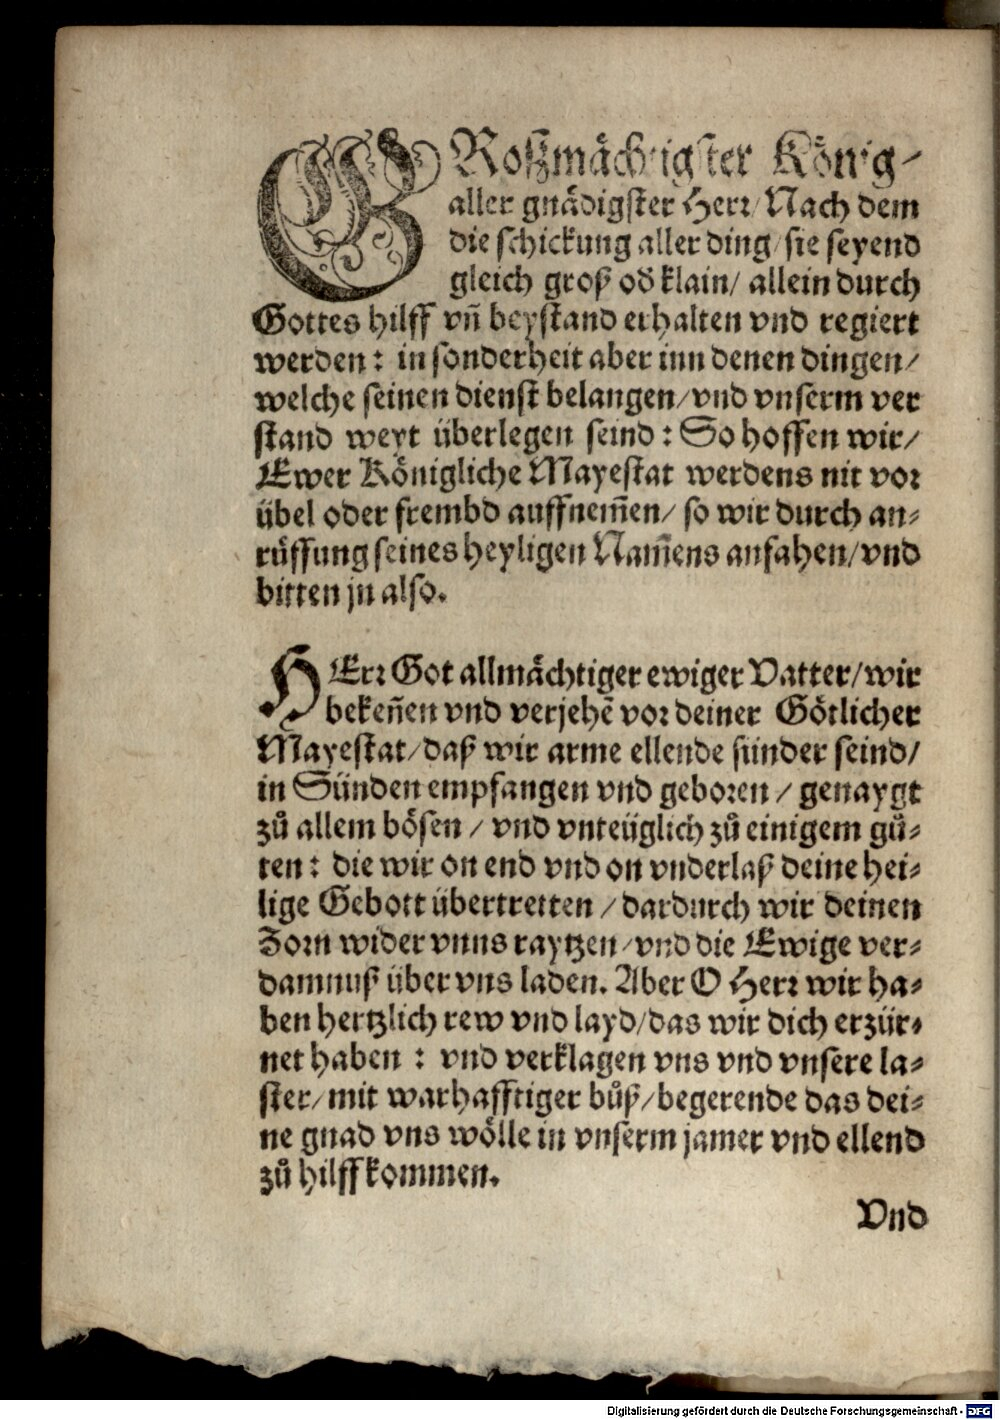 GRoßmächtigster König/
aller gnädigster Herr/ Nach dem
die schickung aller ding/ sie seyend
gleich groß od̕ klain/ allein durch
Gottes hilff vn̄ beystand erhalten vnd regiert
werden: in sonderheit aber inn denen dingen/
welche seinen dienst belangen/ vnd vnserm ver
stand weyt überlegen seind: So hoffen wir/
Ewer Königliche Mayestat werdens nit vor
übel oder frembd auffnem̄en/ so wir durch an-
rüffung seines heyligen Nam̄ens anfahen/ vnd
bitten jn also.
HErr Got allmächtiger ewiger Vatter/ wir
beken̄en vnd verjehē vor deiner Götlicher
Mayestat/ daß wir arme ellende sünder seind/
in Sünden empfangen vnd geboren/ genaygt
zů allem bösen/ vnd vnteüglich zů einigem gů-
ten: die wir on end vnd on vnderlaß deine hei-
lige Gebott übertretten/ dardurch wir deinen
Zorn wider vnns raytzen/ vnd die Ewige ver-
damnuß über vns laden. Aber O Herr wir ha-
ben hertzlich rew vnd layd/ das wir dich erzür-
net haben: vnd verklagen vns vnd vnsere la-
ster/ mit warhafftiger bůß/ begerende das dei-
ne gnad vns wölle in vnserm jamer vnd ellend
zů hilff kommen.
Vnd
Digitalisierung gefördert durch die Deutsche Forschungsgemeinschaft - DFG